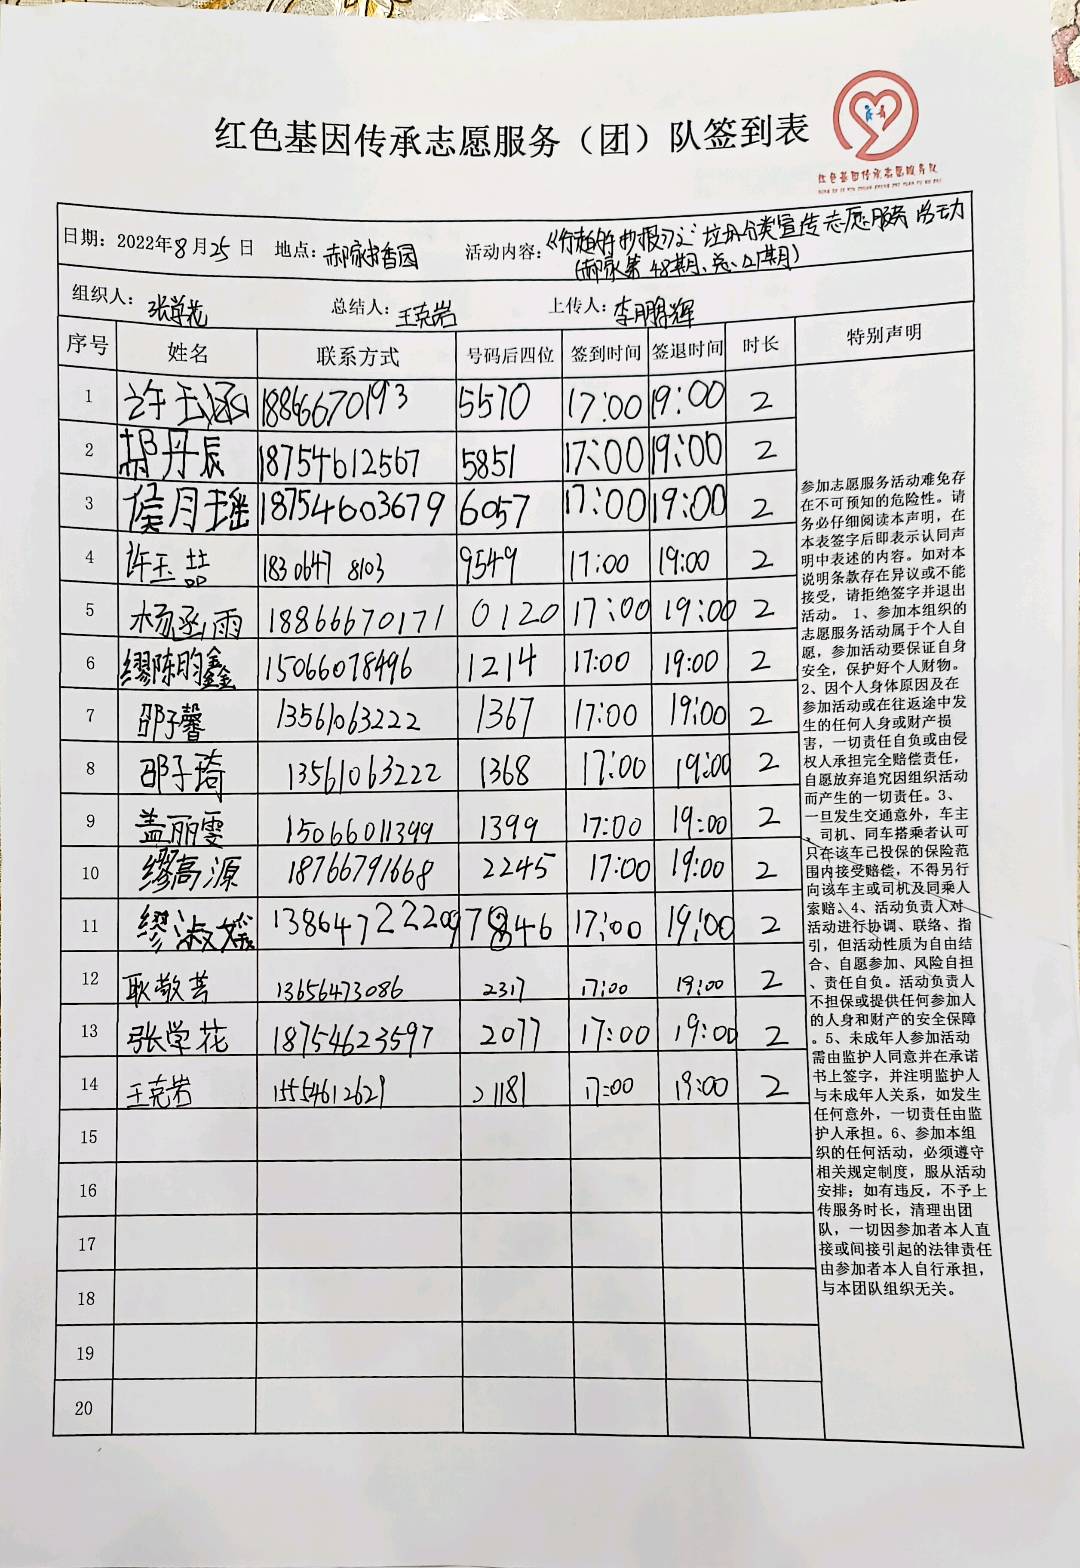 红色基因传承志愿服务（团）队签到表
红色基因传承志愿服务队
日期：2022年8月25日 地点：郝家书香园 活动内容： 垃圾分类宣传志愿服务活动
(郝家第48期、总 期)
组织人：张学花 总结人：王克岩 上传人：李鹏辉
序号 姓名 联系方式 号码后四位 签到时间 签退时间 时长 特别声明
1 许玉涵 18866670193 5570 17:00 19:00 2
2 胡丹辰 18754612567 5851 17:00 19:00 2
3 侯月瑶 18754603679 6057 17:00 19:00 2
4 许玉喆 1830647 8103 9549 17:00 19:00 2
5 杨函雨 18866670171 0120 17:00 19:00 2
6 缪陈昀鑫 15066078496 1214 17:00 19:00 2
7 邵子馨 13561063222 1367 17:00 19:00 2
8 邵子琦 13561063222 1368 17:00 19:00 2
9 盖丽雯 15066011399 1399 17:00 19:00 2
10 缪高源 18766791668 2245 17:00 19:00 2
11 缪淑 13864722209 7846 17:00 19:00 2
12 耿敬芸 13656473086 2317 17:00 19:00 2
13 张学花 18754623597 2077 17:00 19:00 2
14 王克岩 15554612621 21181 17:00 19:00 2
15
16
17
18
19
20
参加志愿服务活动难免存
在不可预知的危险性。请
务必仔细阅读本声明，在
本表签字后即表示认同声
明中表述的内容。如对本
说明条款存在异议或不能
接受，请拒绝签字并退出
活动。 1、参加本组织的
志愿服务活动属于个人自
愿，参加活动要保证自身
安全，保护好个人财物。
2、因个人身体原因及在
参加活动或在往返途中发
生的任何人身或财产损
害，一切责任自负或由侵
权人承担完全赔偿责任，
自愿放弃追究因组织活动
而产生的一切责任。3、
一旦发生交通意外，车主
、司机、同车搭乘者认可
只在该车已投保的保险范
围内接受赔偿，不得另行
向该车主或司机及同乘人
索赔。4、活动负责人对
活动进行协调、联络、指
引，但活动性质为自由结
合、自愿参加、风险自担
、责任自负。活动负责人
不担保或提供任何参加人
的人身和财产的安全保障
。5、未成年人参加活动
需由监护人同意并在承诺
书上签字，并注明监护人
与未成年人关系，如发生
任何意外，一切责任由监
护人承担。6、参加本组
织的任何活动，必须遵守
相关规定制度，服从活动
安排；如有违反，不予上
传服务时长，清理出团
队，一切因参加者本人直
接或间接引起的法律责任
由参加者本人自行承担，
与本团队组织无关。